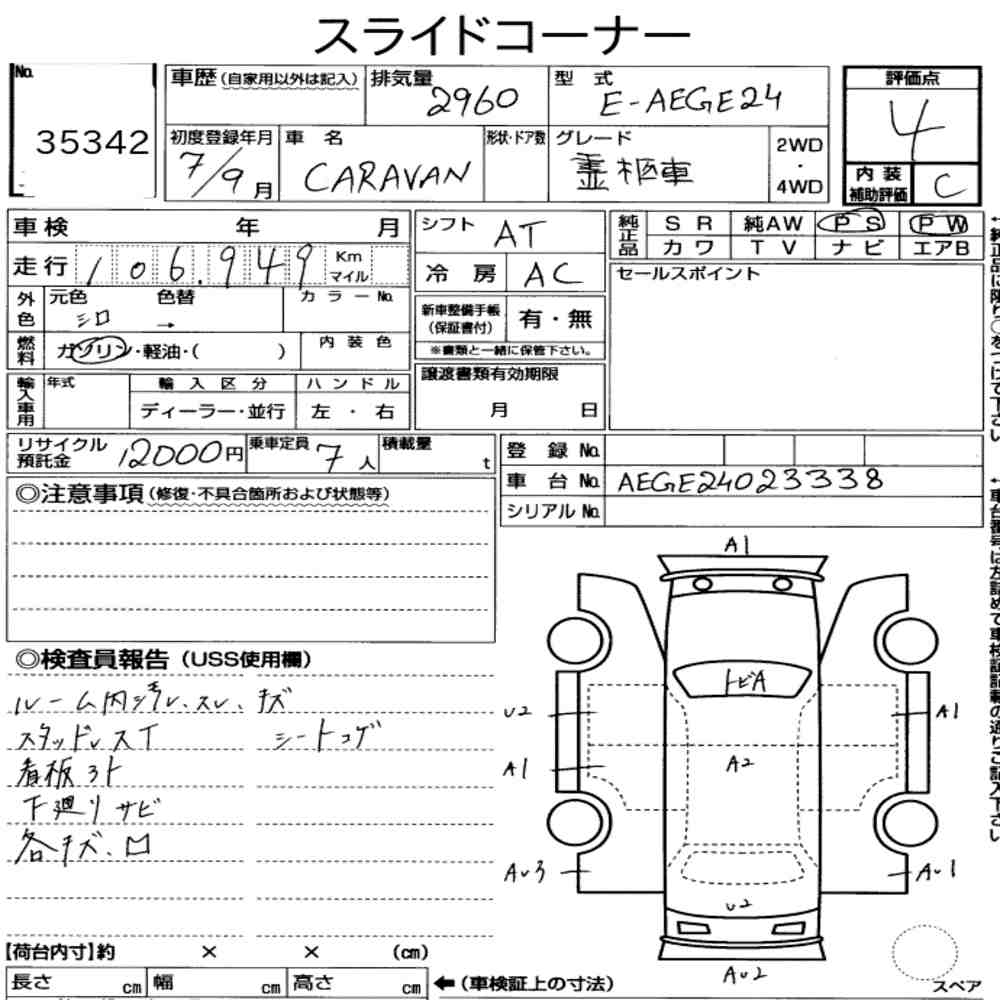 スライドコーナー
No.
35342
車歴(自家用以外は記入)
排気量 2960
型式 E-AEGE24
評価点
4
内装補助評価 C
初度登録年月 7/9月
車名 CARAVAN
形状・ドア数
グレード 霊柩車
2WD・4WD
車検 年 月
走行 106,949 Km マイル
シフト AT
冷房 AC
純正品 SR 純AW PS PW
カワ TV ナビ エアB
外色 元色 シロ 色替 → カラーNo.
燃料 ガソリン・軽油・( )
内装色
新車整備手帳(保証書付) 有・無
※書類と一緒に保管下さい。
セールスポイント
輸入車用 年式 輸入区分 ハンドル
ディーラー・並行 左・右
譲渡書類有効期限
月 日
リサイクル預託金 12000円
乗車定員 7人
積載量 t
登録No.
車台No. AEGE24023338
シリアルNo.
◎注意事項(修復・不具合箇所および状態等)
◎検査員報告(USS使用欄)
ルーム内汚レ、スレ、キズ
スタッドレスT シートコゲ
看板3ト
下廻りサビ
各キズ、凹
A1
トビA
U2
A1
A1
A2
AU3
AU1
U2
AU2
スペア
【荷台内寸】約 × × (cm)
長さ cm 幅 cm 高さ cm
←(車検証上の寸法)
←純正品に限り○をつけて下さい
←車台番号は左詰めで車検証記載の通りご記入下さい